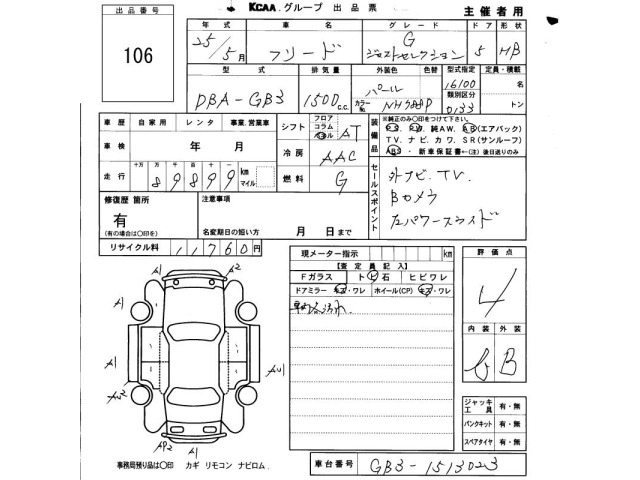 出品番号
106
KCAA グループ 出品票
主催者用
年式 車名 グレード ドア 形状
25/5月 フリード G ジャストセレクション 5 HB
型式 排気量 外装色 色替 型式指定 定員・積載
DBA-GB3 1500 c.c. パール カラーNo. NH788P 16100 類別区分 0133 名 トン
車歴 自家用 レンタ 事業.営業車
車検 年 月
走行 十万 万 千 百 十 89899 km マイル
シフト フロア コラム パネル AT
冷房 AAC
燃料 G
装備品 ※純正のみ〇印をつけて下さい。
P.S. P.W. 純AW. AB(エアバック)
T.V. ナビ. カワ. SR(サンルーフ)
ABS・新車保証書←(注)後日送りのみ
修復歴 箇所
有
(有の場合は〇印を)
注意事項
名変期日の短い方 月 日まで
セールスポイント
外ナビ.TV.
Bカメラ
左パワースライド
リサイクル料 11760円
現メーター指示 km
【査定員記入】
Fガラス トビ石 ヒビワレ
ドアミラー キズ・ワレ ホイール(CP) キズ・ワレ
評価点
4
内装 外装
B
A1 A2
A1 A1
A1 AU1
AU2 A1
AP2 A1
ジャッキ 工具 有・無
パンクキット 有・無
スペアタイヤ 有・無
事務局預り品は〇印 カギ リモコン ナビロム.
車台番号 GB3-1513023